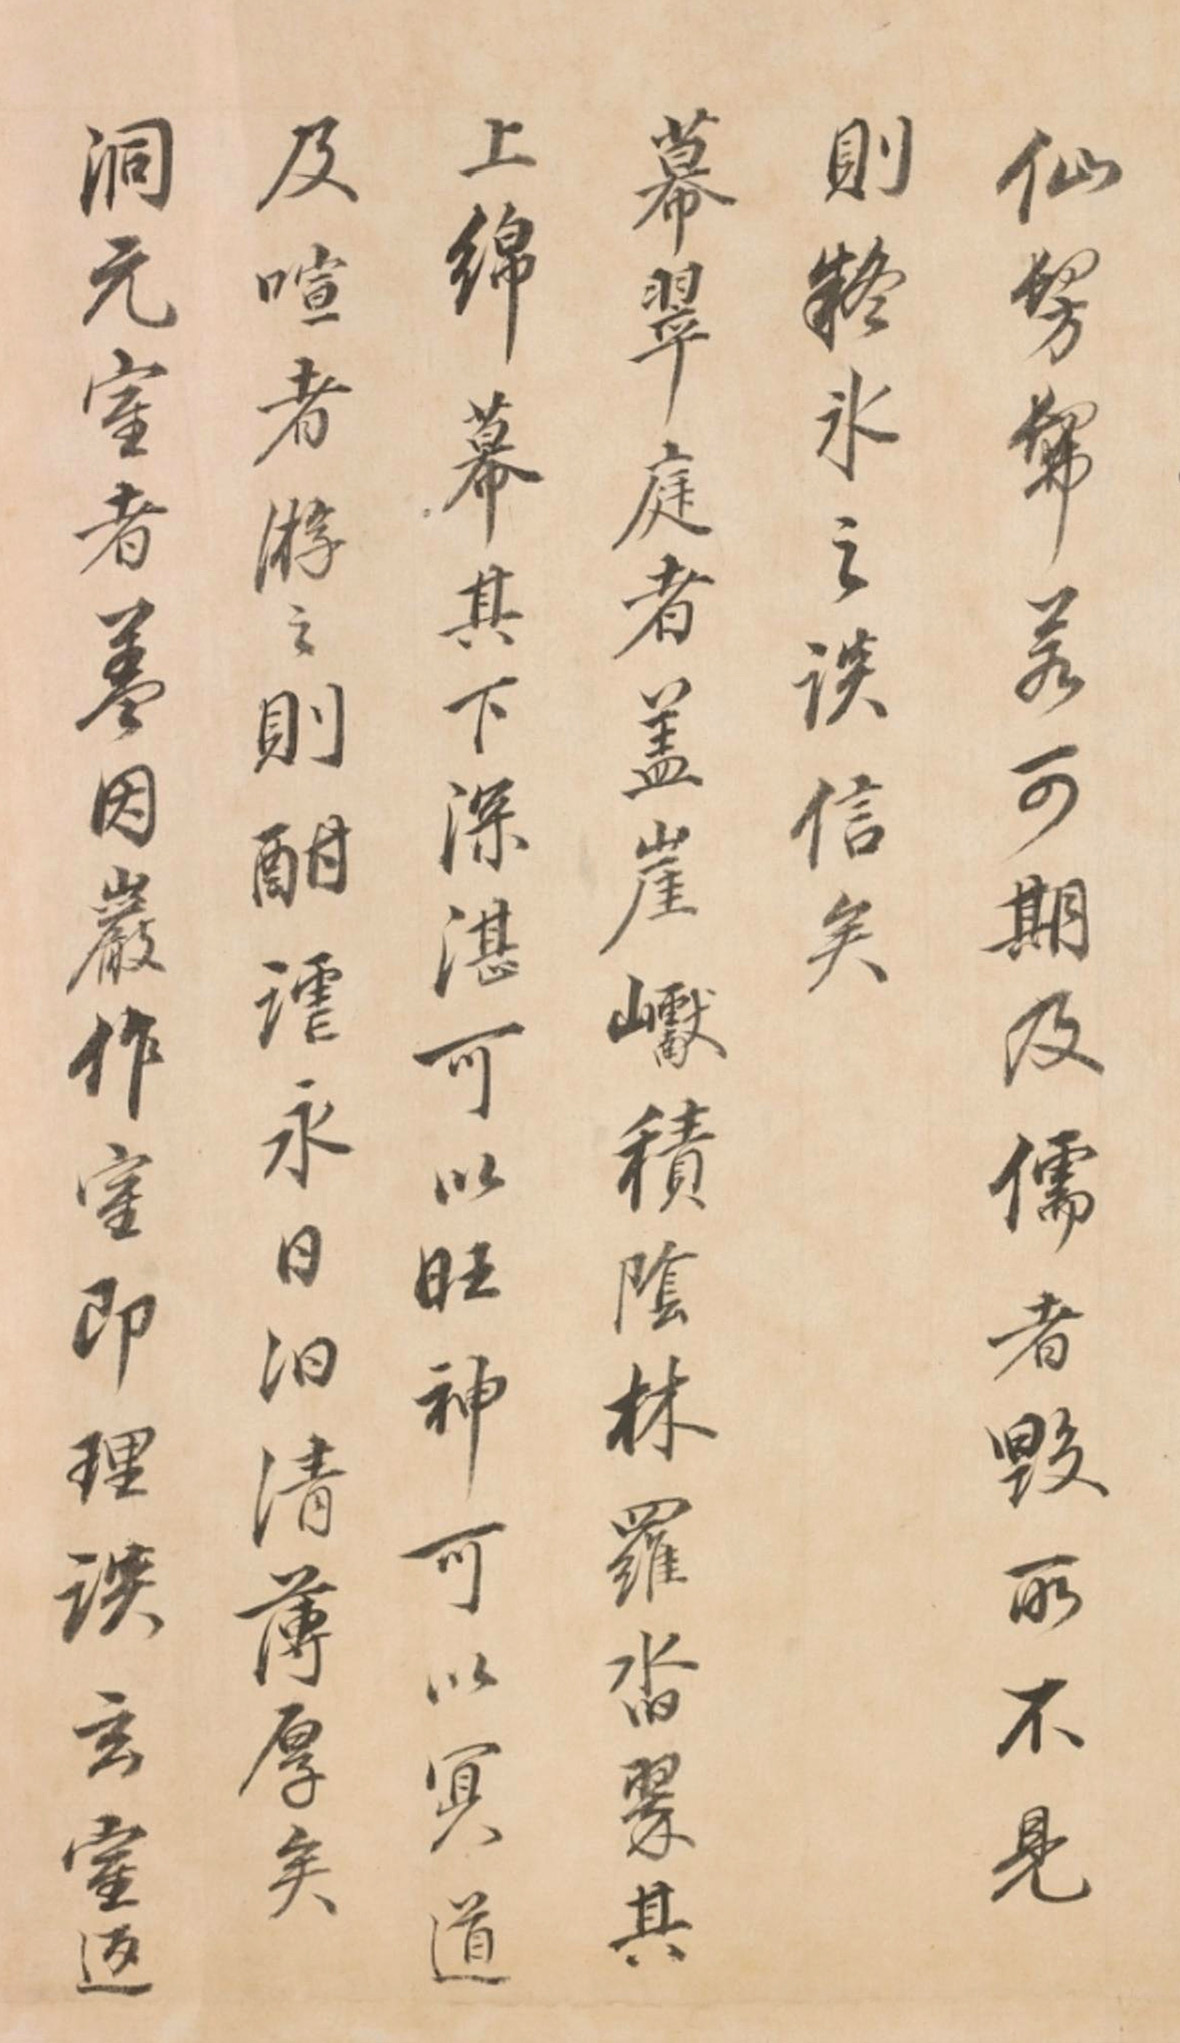 仙髣髴若可期及儒者毀所不見
則黐氷之談信矣
幕翠庭者盖崖巘積陰林羅沓翠其
上綿幕其下深湛可以王神可以冥道
及喧者游之則酣謔永日汨清薄厚矣
洞元室者盖因巖作室即理談玄室返